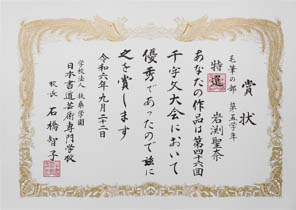 賞状
毛筆の部 第五学年
特選 岩渕聖奈
あなたの作品は第四十六回
千字文大会において
優秀であったので茲に
之を賞します
令和六年九月二十二日
学校法人 扶桑学園
日本書道芸術専門学校
校長 石橋智子